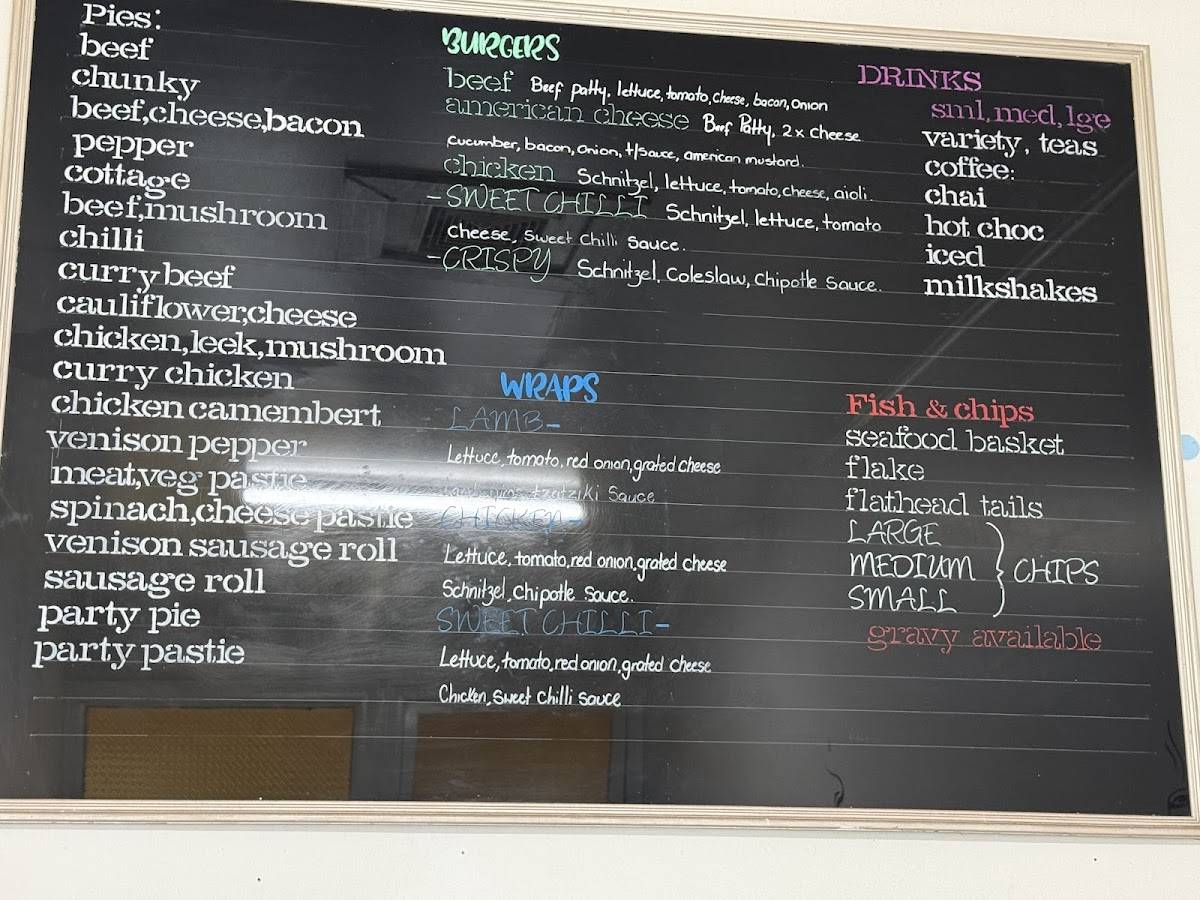 Pies:
beef
chunky
beef,cheese,bacon
pepper
cottage
beef,mushroom
chilli
curry beef
cauliflower,cheese
chicken,leek,mushroom
curry chicken
chicken camembert
venison pepper
meat,veg pastie
spinach,cheese pastie
venison sausage roll
sausage roll
party pie
party pastie
BURGERS
beef Beef patty, lettuce, tomato, cheese, bacon, onion
american cheese Beef Patty, 2x cheese
cucumber, bacon, onion, t/sauce, american mustard.
chicken Schnitzel, lettuce, tomato, cheese, aioli.
-SWEET CHILLI Schnitzel, lettuce, tomato
cheese, sweet chilli sauce.
-CRISPY Schnitzel, Coleslaw, Chipotle Sauce.
WRAPS
LAMB-
Lettuce, tomato, red onion, grated cheese
tzatziki Sauce
CHICKEN-
Lettuce, tomato, red onion, grated cheese
Schnitzel, Chipotle Sauce.
SWEET CHILLI-
Lettuce, tomato, red onion, grated cheese
Chicken, Sweet Chilli Sauce
DRINKS
sml, med, lge
variety, teas
coffee:
chai
hot choc
iced
milkshakes
Fish & chips
seafood basket
flake
flathead tails
LARGE
MEDIUM } CHIPS
SMALL
gravy available